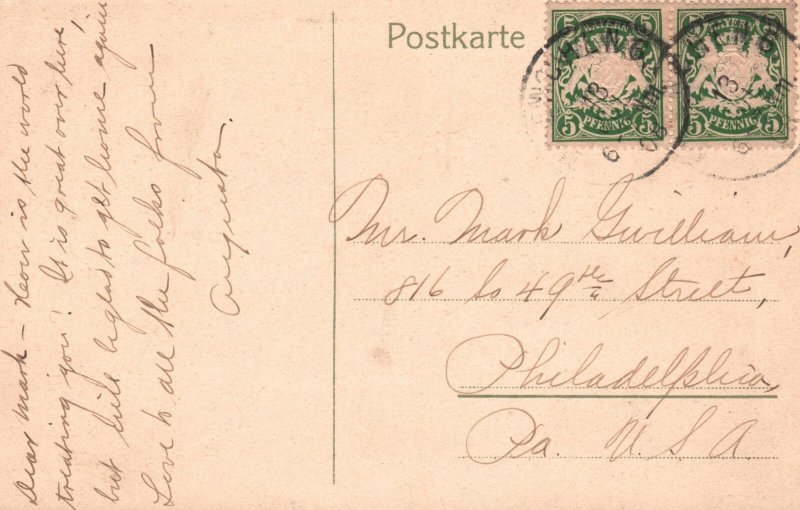 Postkarte
BAYERN
5 5
PFENNIG
BAYERN
5 5
PFENNIG
13
6-
08
13
6
Dear Mark – How is the world
treating you? It is great over here,
but will be glad to get home again
Love to all the folks from
Augusta.
Mr. Mark Gwilliam,
816 So 49th Street,
Philadelphia,
Pa. U.S.A.